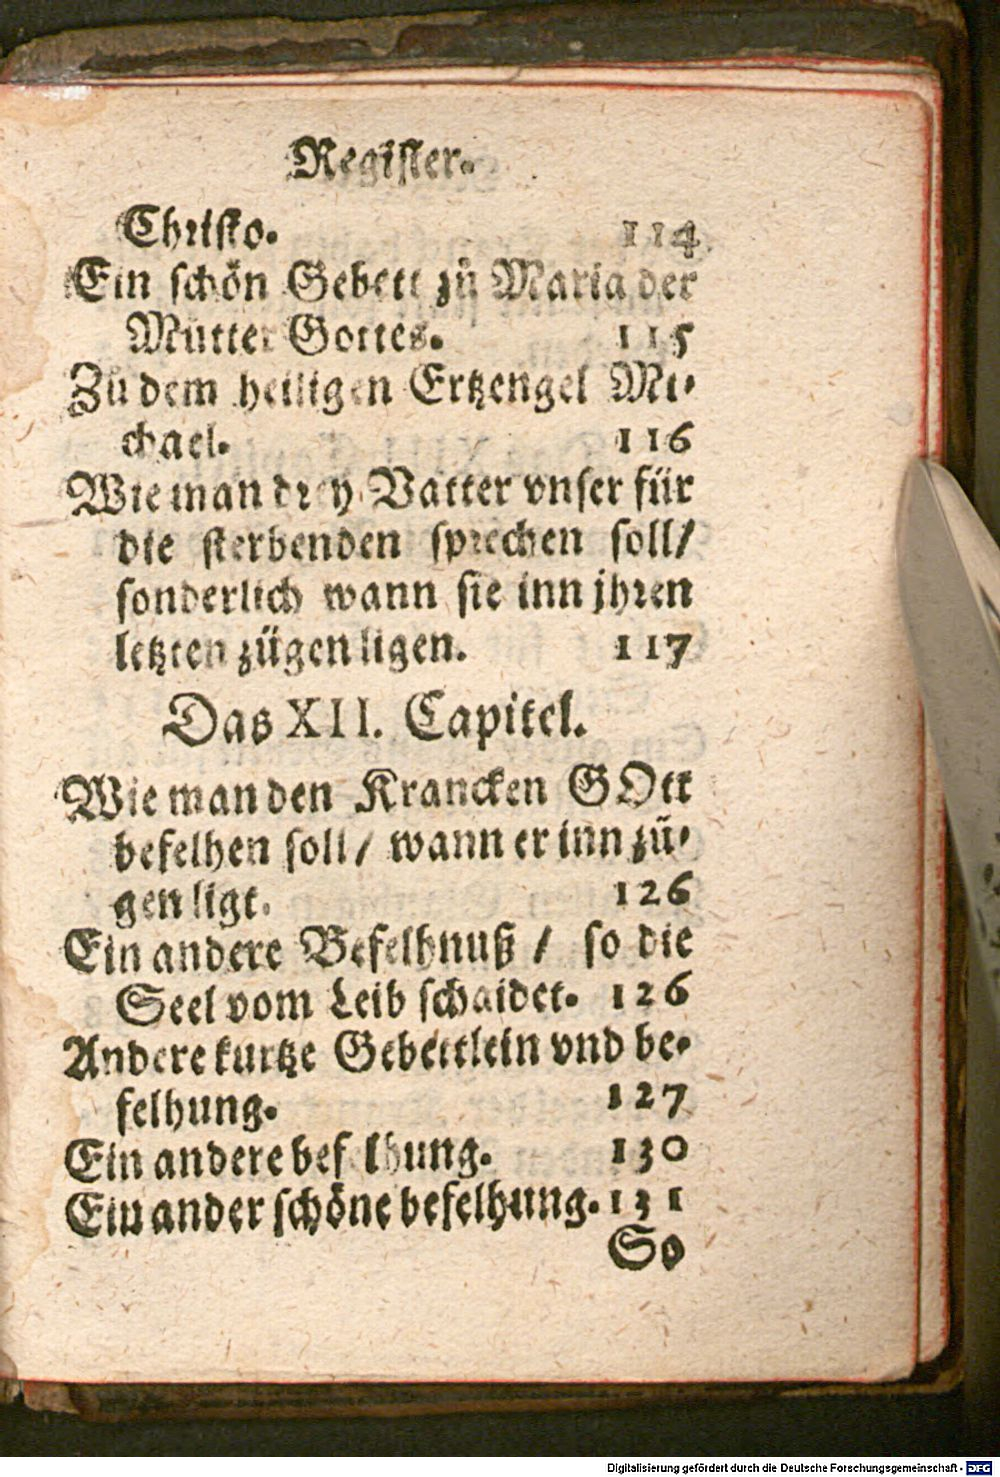 Register.
Christo. 114
Ein schön Gebett zů Maria der
Můtter Gottes. 115
Zů dem heiligen Ertzengel Mi-
chael. 116
Wie man drey Vatter vnser für
die sterbenden sprechen soll/
sonderlich wann sie inn jhren
letzten zügen ligen. 117
Das XII. Capitel.
Wie man den Krancken GOtt
befelhen soll/ wann er inn zü-
gen ligt. 126
Ein andere Befelhnuß / so die
Seel vom Leib schaidet. 126
Andere kurtze Gebettlein vnd be-
felhung. 127
Ein andere befelhung. 130
Ein ander schöne befelhung. 131
So
Digitalisierung gefördert durch die Deutsche Forschungsgemeinschaft - DFG